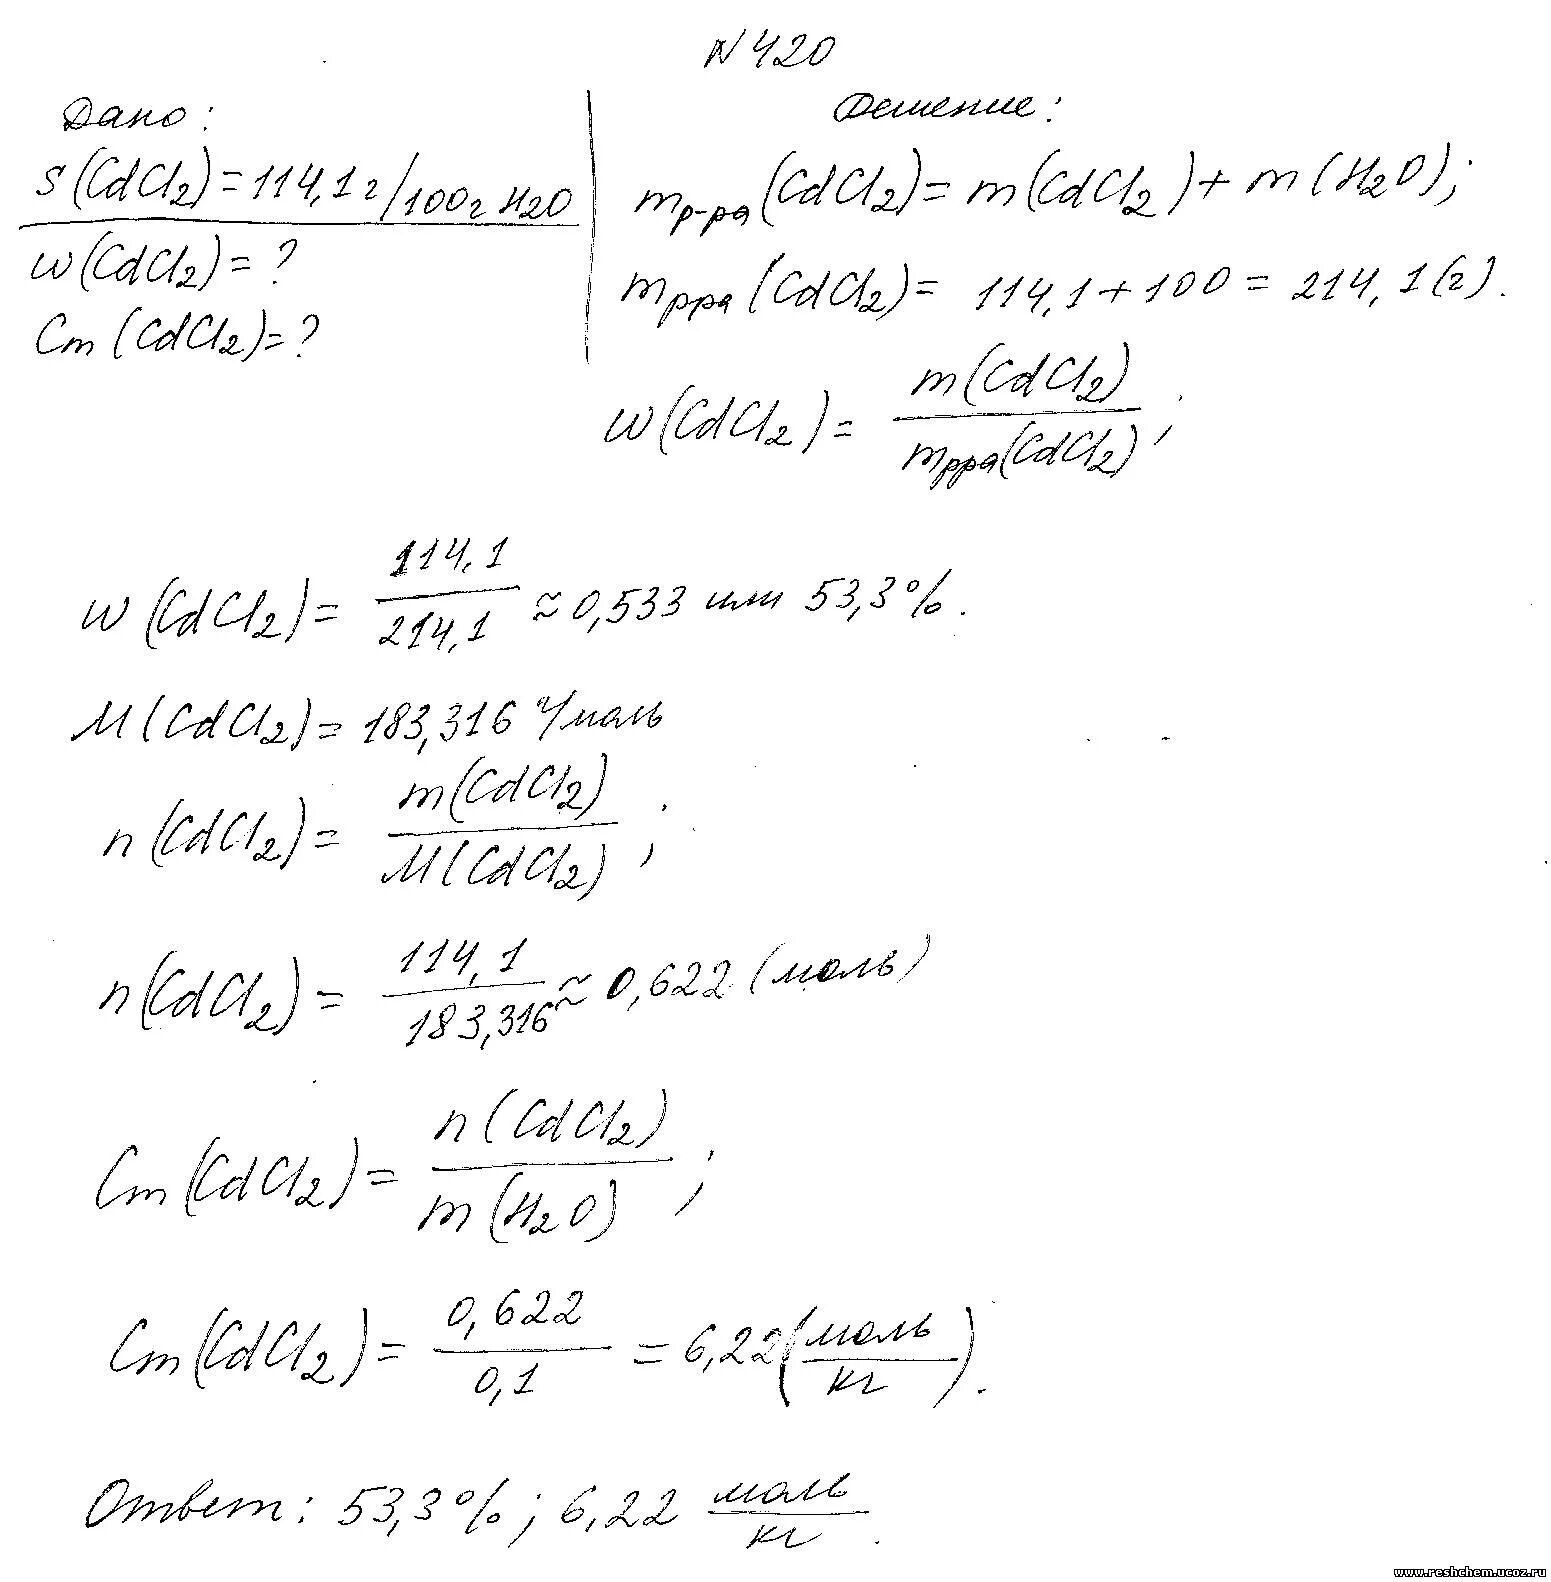 N 420
Дано:
S(CdCl2)=114,1г/100г H2O
w(CdCl2)=?
Cm(CdCl2)=?
Решение:
mр-ра(CdCl2)=m(CdCl2)+m(H2O);
mрра(CdCl2)= 114,1+100=214,1(г).
w(CdCl2)= m(CdCl2)/mрра(CdCl2);
w(CdCl2)= 114,1/214,1 ≈0,533 или 53,3%.
M(CdCl2)=183,316 г/моль
n(CdCl2)= m(CdCl2)/M(CdCl2);
n(CdCl2)= 114,1/183,316 ≈ 0,622 (моль)
Cm(CdCl2)= n(CdCl2)/m(H2O);
Cm(CdCl2)= 0,622/0,1 = 6,22(моль/кг).
Ответ: 53,3%; 6,22 моль/кг.
www.reshchem.ucoz.ru